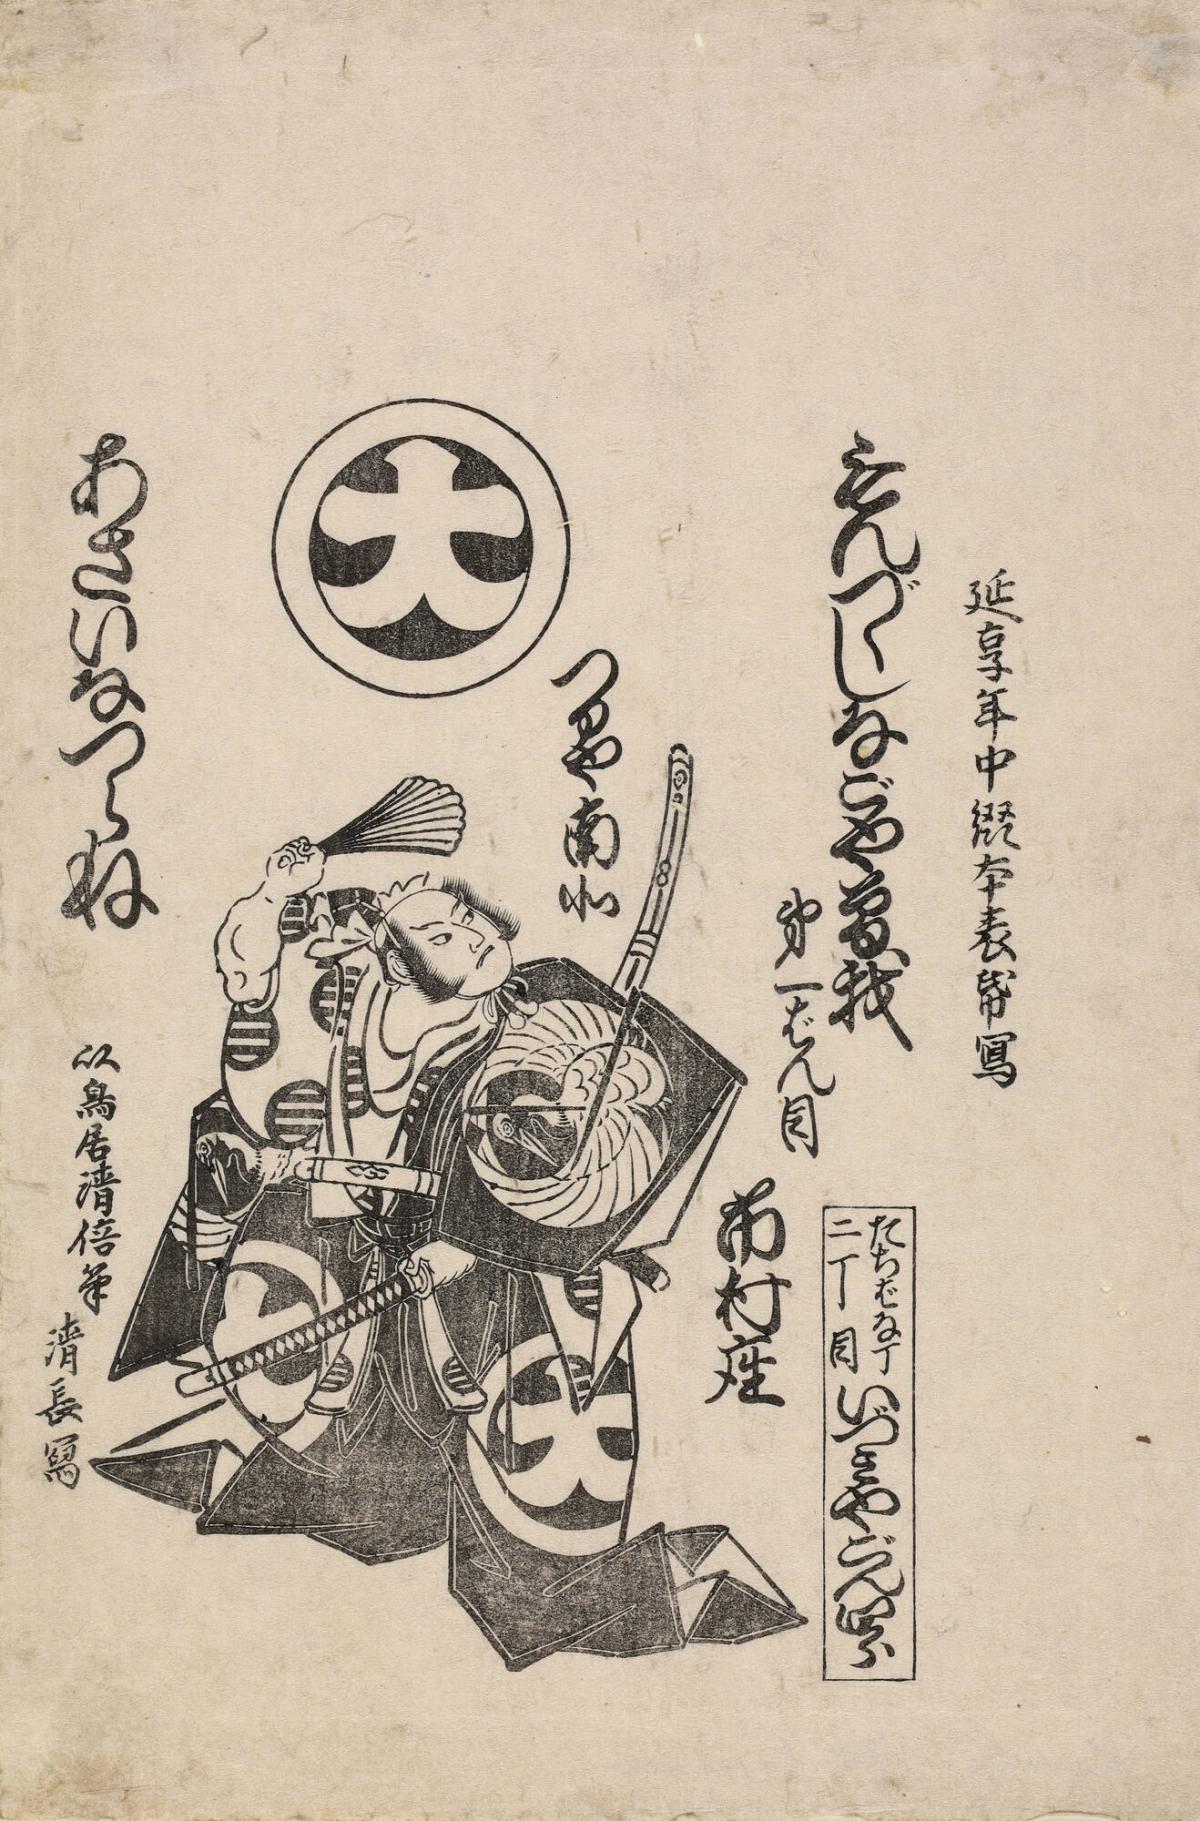 延享年中綴本表帋冩
てんづくしなごや曽我
第一ばん目
市村座
たちばな丁
二丁目
いづみやごん四郎
つるや南北
あさいなつらね
以鳥居清倍筆
清長冩